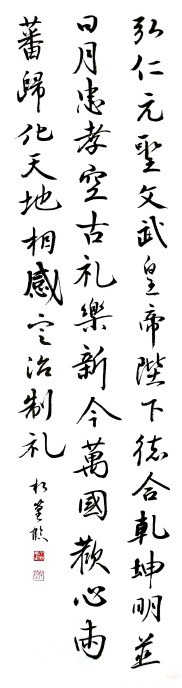 弘仁元聖文武皇帝陛下德合乾坤明並
日月忠孝空古礼樂新今萬國歡心兩
蕃歸化天地相感定治制礼